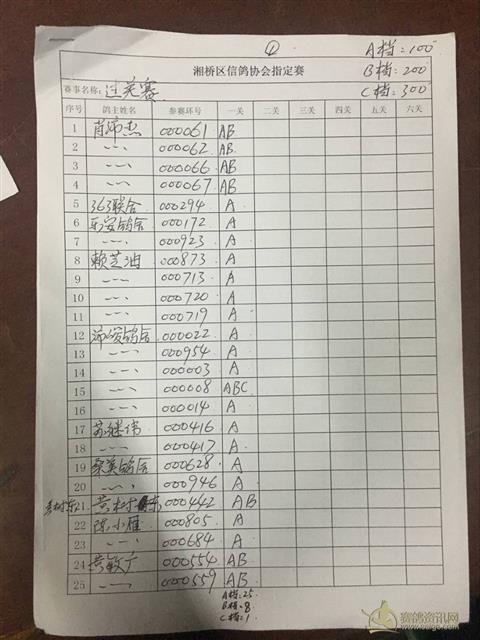 ① A档:100
湘桥区信鸽协会指定赛 B档:200
赛事名称: 过关赛 C档:300
序号 鸽主姓名 参赛环号 一关 二关 三关 四关 五关 六关
1 肖沛杰 000061 AB
2 〃 000062 AB
3 〃 000066 AB
4 〃 000067 AB
5 363联合 000294 A
6 乐安鸽舍 000172 A
7 〃 000923 A
8 赖芝油 000873 A
9 〃 000713 A
10 〃 000720 A
11 〃 000719 A
12 沛峻鸽舍 000022 A
13 〃 000954 A
14 〃 000003 A
15 〃 000008 ABC
16 〃 000014 A
17 苏继伟 000416 A
18 〃 000417 A
19 鸽舍 000628 A
20 〃 000946 A
黄树东 21 黄树东 000442 AB
22 陈小雁 000805 A
23 〃 000684 A
24 黄毅广 000554 AB
25 〃 000559 AB
A档:25
B档:8
C档:1
赛鸽资讯网